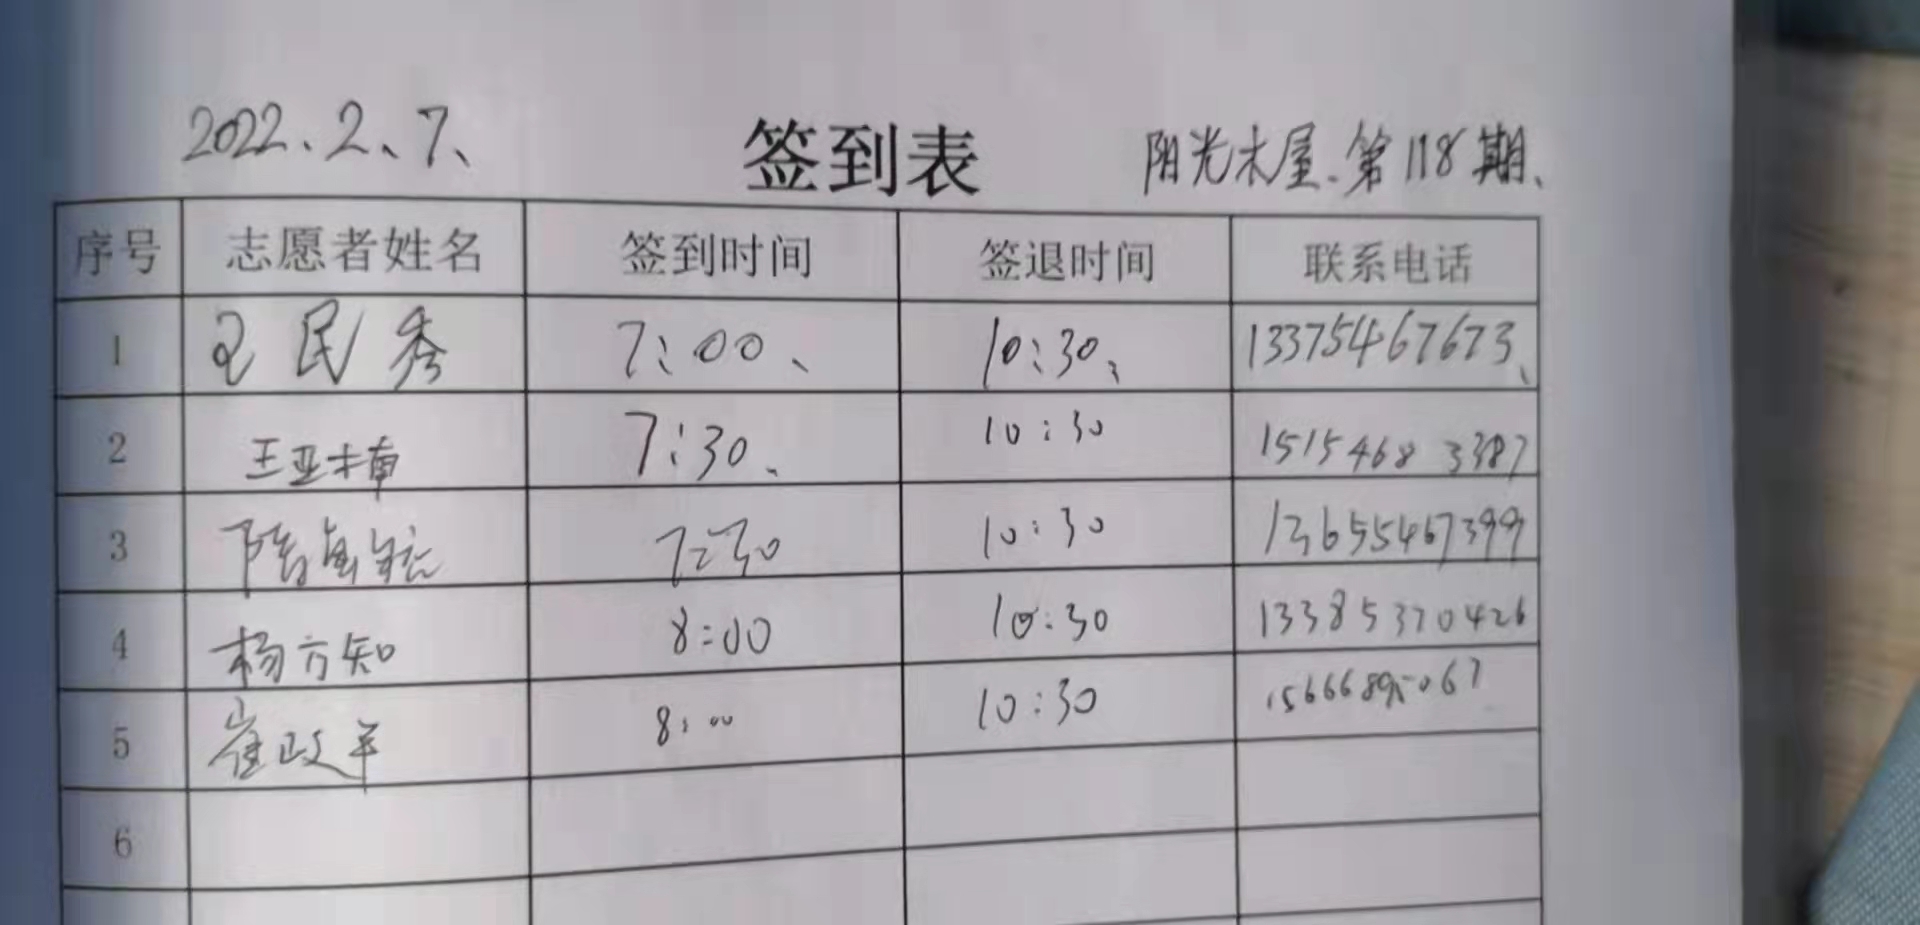 2022、2、7、
签到表
阳光木屋、第118期、
序号 志愿者姓名 签到时间 签退时间 联系电话
1 王民秀 7:00、 10:30、 13375467673、
2 王亚楠 7:30、 10:30 15154683387
3 7:30 10:30 13655467399
4 杨方知 8:00 10:30 13385370426
5 崔政 8:00 10:30 15666895067
6